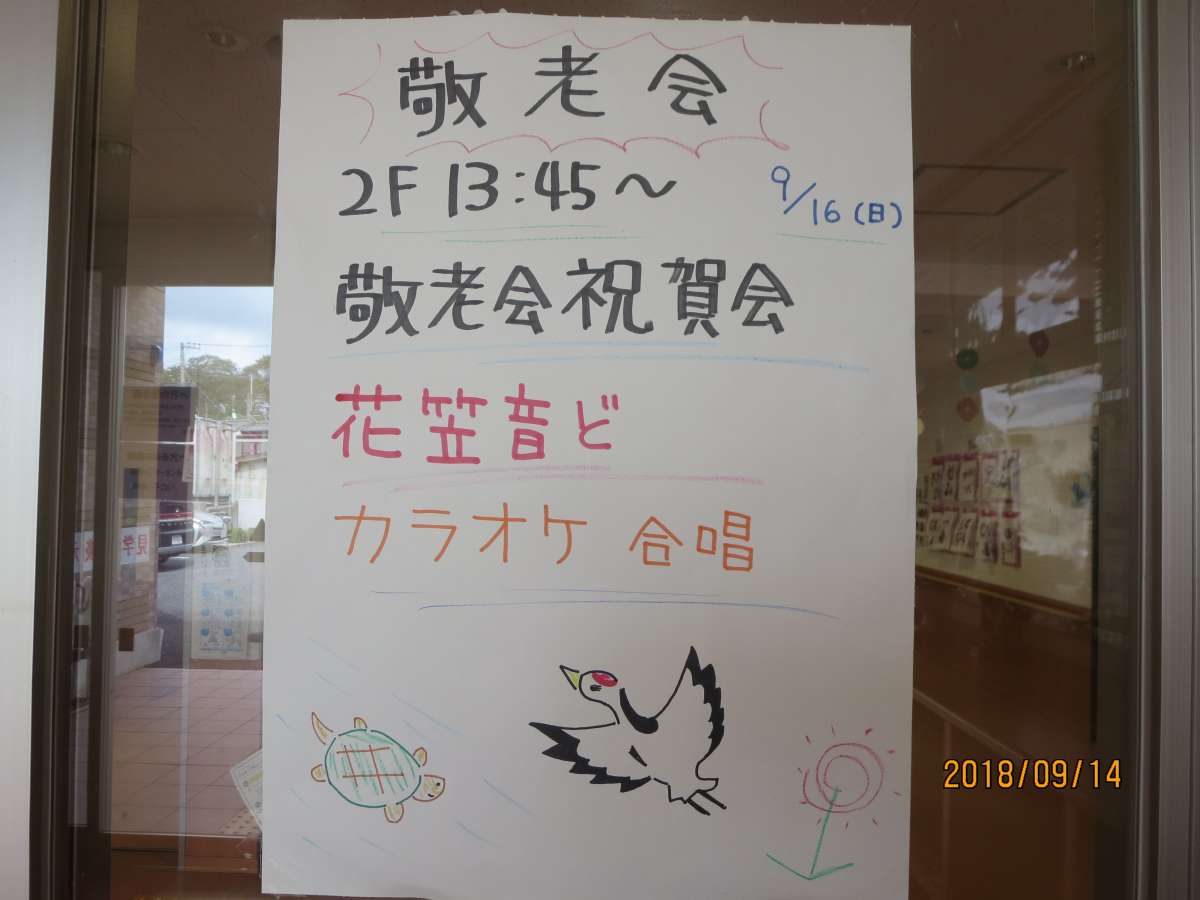 敬老会
2F 13:45～ 9/16(日)
敬老会祝賀会
花笠音ど
カラオケ 合唱
見学
2018/09/14